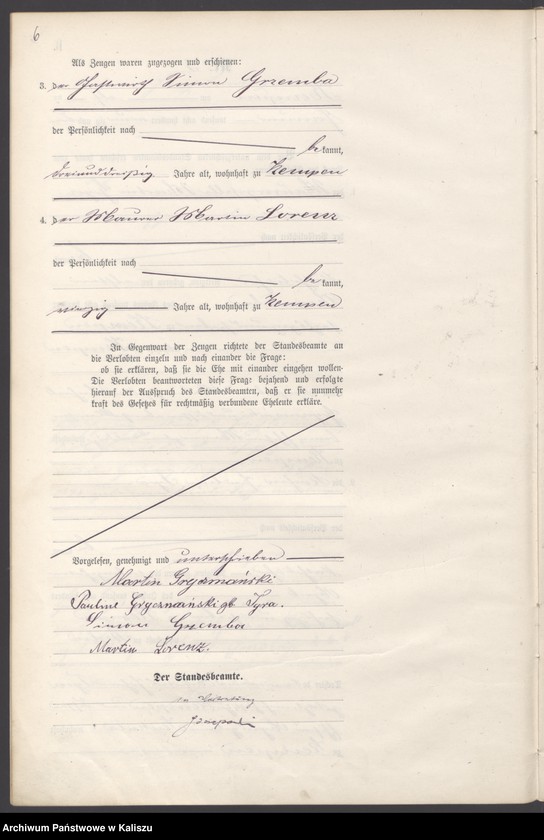 6
Als Zeugen waren zugezogen und erschienen:
3. der Gastwirth Simon Grzemba
der Persönlichkeit nach
bekannt,
dreiunddreißig Jahre alt, wohnhaft zu Kempen
4. der Maurer Martin Lorenz
der Persönlichkeit nach
bekannt,
vierzig Jahre alt, wohnhaft zu Kempen
In Gegenwart der Zeugen richtete der Standesbeamte an
die Verlobten einzeln und nach einander die Frage:
ob sie erklären, daß sie die Ehe mit einander eingehen wollen.
Die Verlobten beantworteten diese Frage bejahend und erfolgte
hierauf der Ausspruch des Standesbeamten, daß er sie nunmehr
kraft des Gesetzes für rechtmäßig verbundene Eheleute erkläre.
Vorgelesen, genehmigt und unterschrieben
Martin Gryczmański
Pauline Gryczmański gb. Syra.
Simon Grzemba
Martin Lorenz.
Der Standesbeamte.
In Vertretung
Archiwum Państwowe w Kaliszu